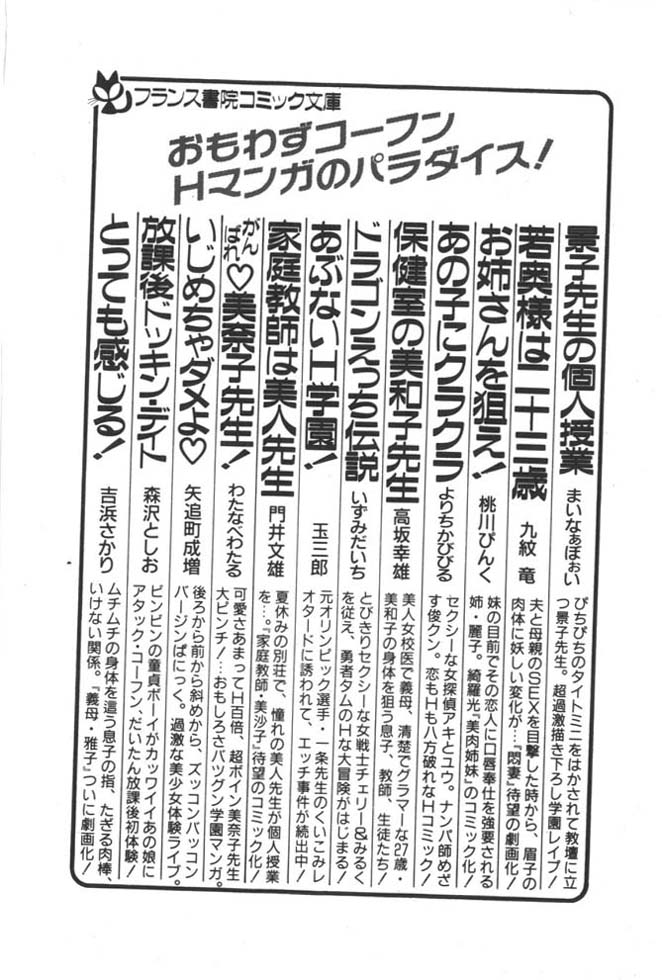 フランス書院コミック文庫
おもわずコーフン
Hマンガのパラダイス!
景子先生の個人授業 まいなぁぼぉい
ぴちぴちのタイトミニをはかされて教壇に立
つ景子先生。超過激描き下ろし学園レイプ!
若奥様は二十三歳 九紋 竜
夫と母親のSEXを目撃した時から、眉子の
肉体に妖しい変化が…『悶妻』待望の劇画化!
お姉さんを狙え! 桃川ぴんく
妹の目前でその恋人に口唇奉仕を強要される
姉・麗子。綺羅光『美肉姉妹』のコミック化!
あの子にクラクラ よりちかびびる
セクシーな女探偵アキとユウ。ナンパ師めざ
す俊クン。恋もHも八方破れなHコミック!
保健室の美和子先生 高坂幸雄
美人女校医で義母、清楚でグラマーな27歳・
美和子の身体を狙う息子、教師、生徒たち!
ドラゴンえっち伝説 いずみだいち
とびきりセクシーな女戦士チェリー&みるく
を従え、勇者タムのHな大冒険がはじまる!
あぶないH学園! 玉三郎
元オリンピック選手・一条先生のくいこみレ
オタードに誘われて、エッチ事件が続出中!
家庭教師は美人先生 門井文雄
夏休みの別荘で、憧れの美人先生が個人授業
を…。『家庭教師・美沙子』待望のコミック化!
がんばれ♡美奈子先生! わたなべわたる
可愛さあまってH百倍、超ボイン美奈子先生
大ピンチ!…おもしろさバツグン学園マンガ。
いじめちゃダメよ♡ 矢追町成増
後ろから前から斜めから、ズッコンバッコン
バージンぱにっく。過激な美少女体験ライブ。
放課後ドッキン・デイト 森沢としお
ピンピンの童貞ボーイがカッワイイあの娘に
アタック・コーフン、だいたん放課後初体験!
とっても感じる! 吉浜さかり
ムチムチの身体を這う息子の指、たぎる肉棒、
いけない関係。『義母・雅子』ついに劇画化!